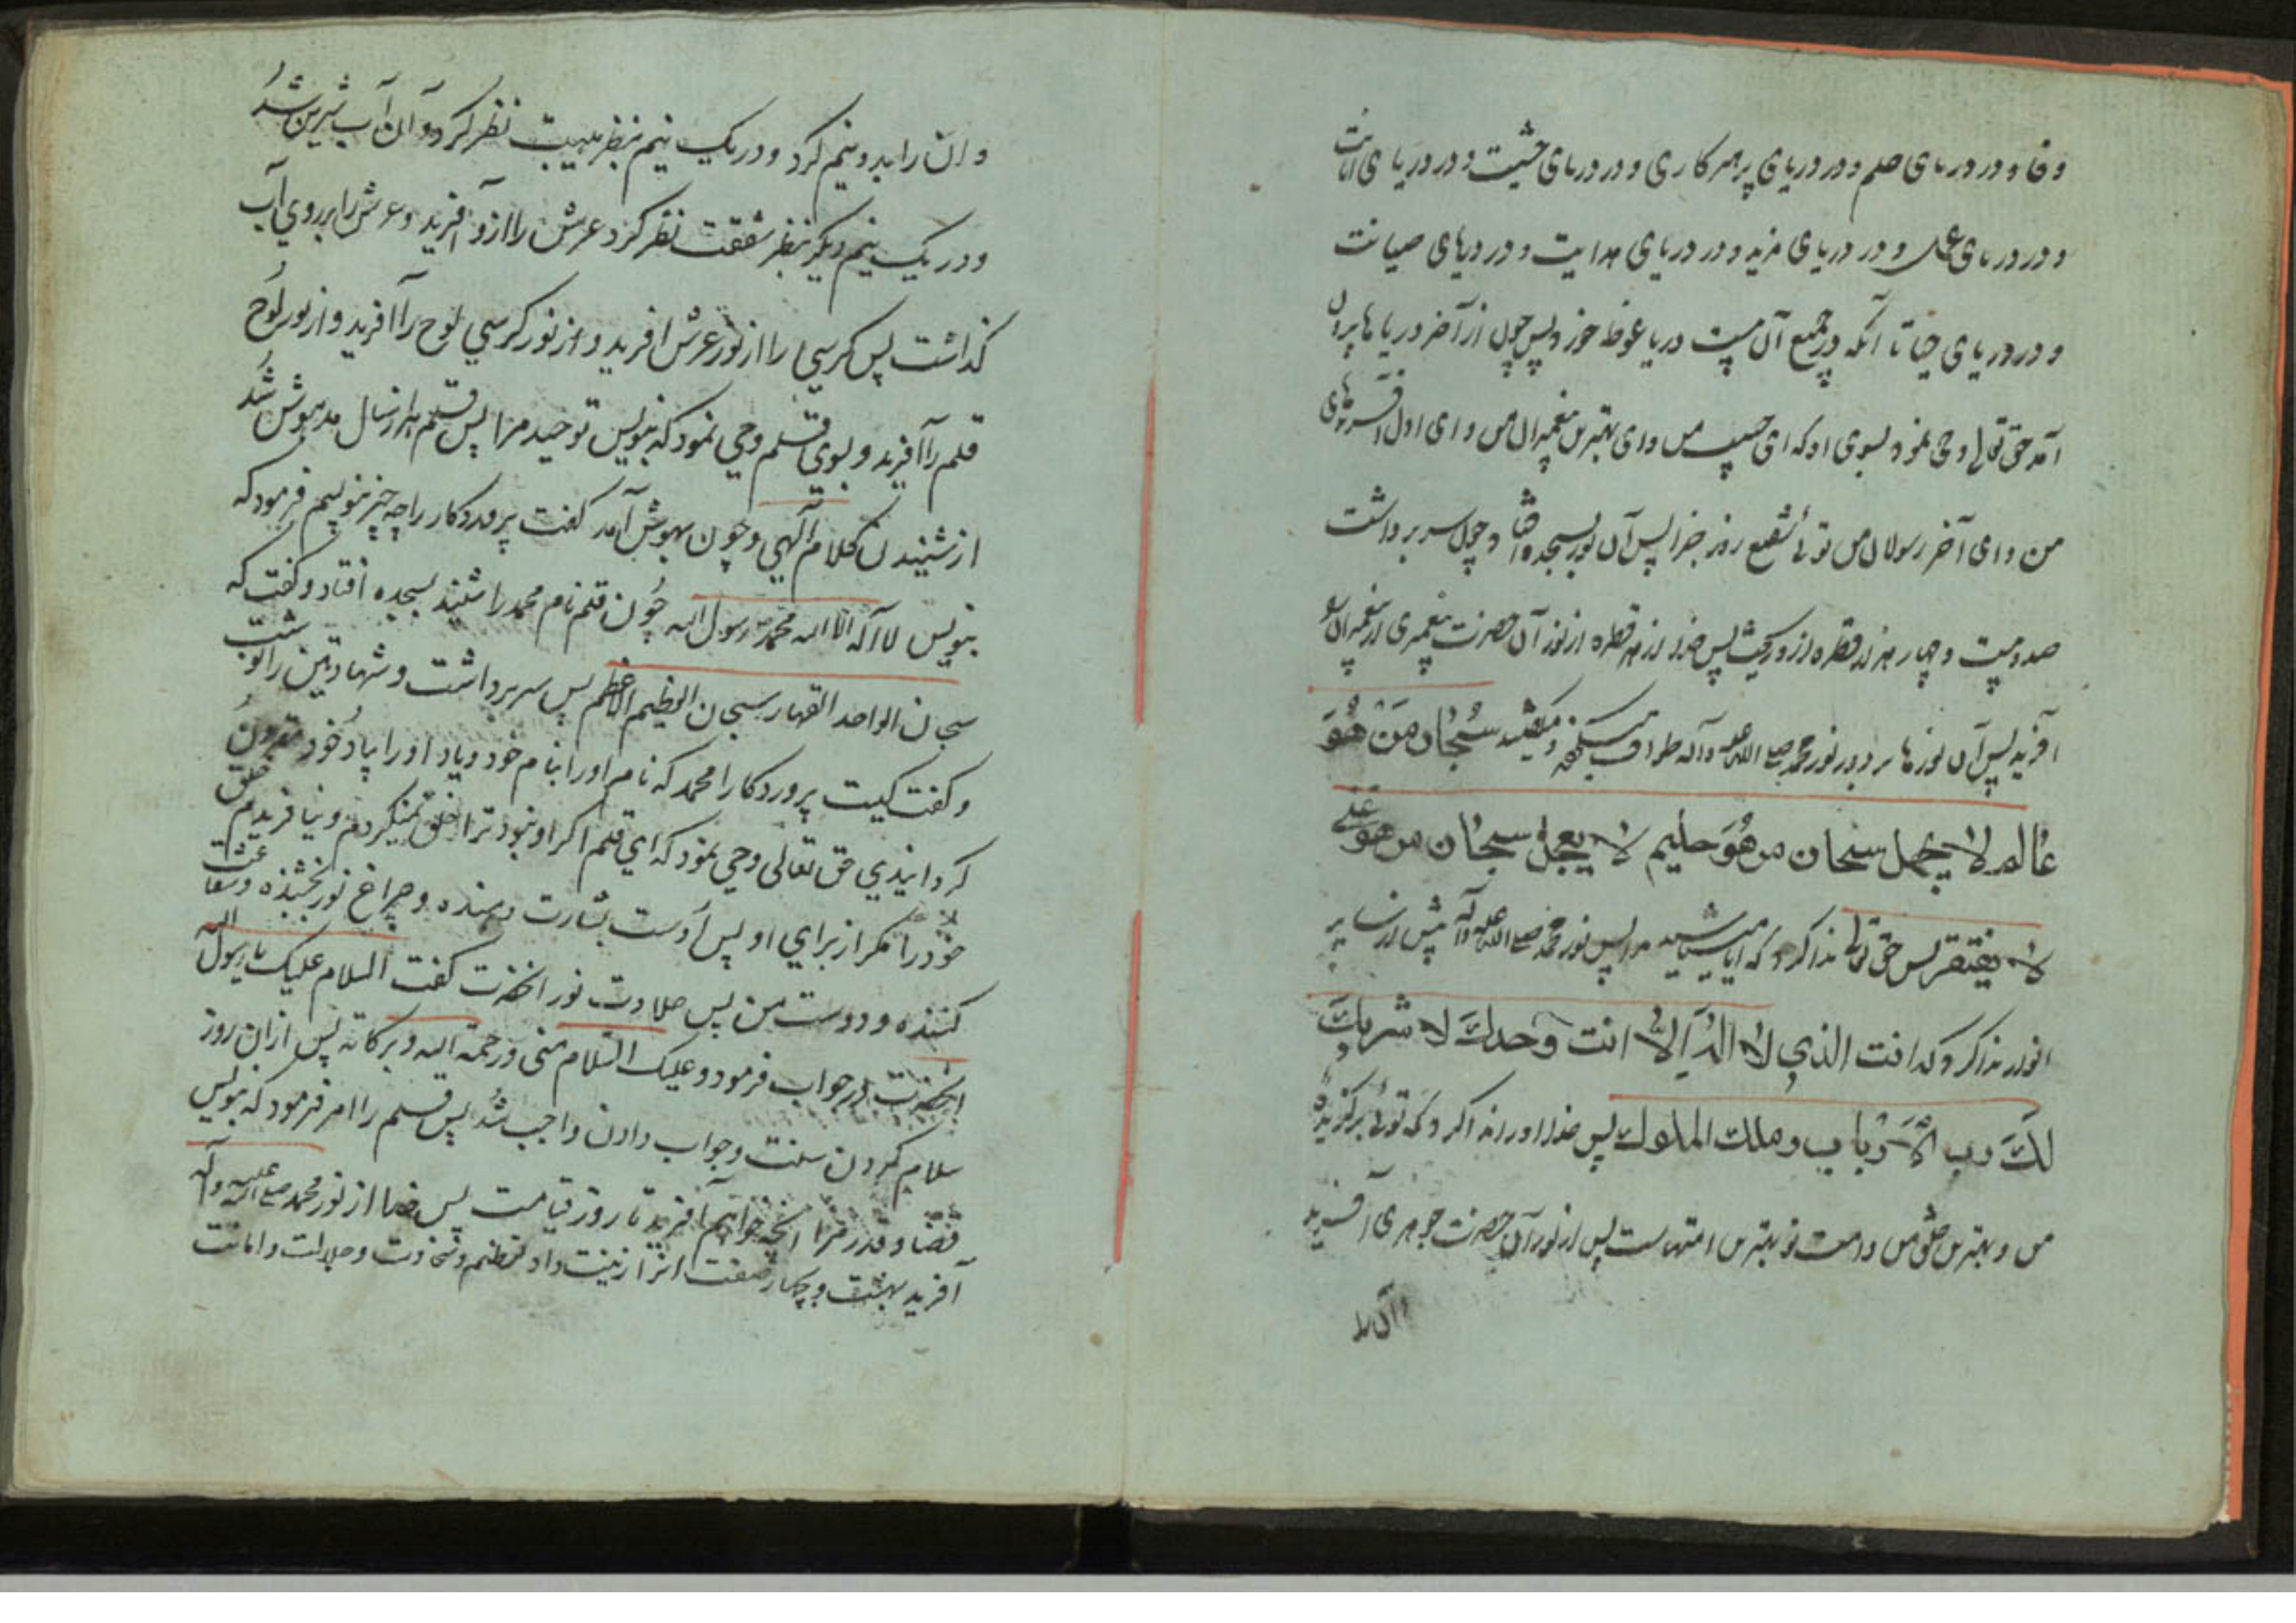 وفا و در دریای حلم و در دریای پرهیزکاری و در دریای خشیت و در دریای انابت
و در دریای عمل و در دریای مزید و در دریای هدایت و در دریای صیانت
و در دریای حیا تا آنکه در جمیع آن بیست دریا غوطه خورد پس چون از آخر دریاها بیرون
آمد حق تعالی وحی نمود بسوی او که ای حبیب من و ای بهترین پیغمبران من و ای اول آفریدهای
من و ای آخر رسولان من توئی شفیع روز جزا پس آن نور بسجده افتاد و چون سر برداشت
صد و بیست و چهار هزار قطره از او ریخت پس خدا از هر قطره از نور آن حضرت پیغمبری از پیغمبران را
آفرید پس آن نورها بر دور نور محمد صلی الله علیه و آله طواف میکردند و میگفتند سُبْحان مَنْ هُوَ
عالم لا یجهل سبحان من هُوَ حلیم لا یعجل سبحان من هو غنی
لا یفتقر پس حق تعالی ندا کرد که ایا میشناسید مرا پس نور محمد صلی الله علیه و آله پیش از سایر
انوار ندا کرد که انت الذی لا اله الا انت وحدک لا شریک
لک رب الارباب و ملک الملوک پس خدا او را ندا کرد که توئی برگزیده
من و بهترین خلق من و امت تو بهترین امتهاست پس از نور آن حضرت جوهری آفرید
و آن را
و ان را بدو نیم کرد و در یک نیم بنظر هیبت نظر کرد و آن آب شیرین شد
و در یک نیم دیگر بنظر شفقت نظر کرد عرش را از و آفرید و عرش را بر روی آب
گذاشت پس کرسی را از نور عرش افرید و از نور کرسی لوح را آفرید و از نور لوح
قلم را آفرید و بسوی قلم وحی نمود که بنویس توحید مرا پس قلم هزار سال مدهوش شد
از شنیدن کلام الهی و چون بهوش آمد گفت پروردگار را چه چیز بنویسم فرمود که
بنویس لا اله الا الله محمد رسول الله چون قلم نام محمد را شنید بسجده افتاد و گفت که
سبحان الواحد القهار سبحان العظیم الاعظم پس سر برداشت و شهادتین را نوشت
و گفت کیست پروردگارا محمد که نام او را بنام خود و یاد او را بیاد خود مقرون
گردانیدی حق تعالی وحی نمود که ای قلم اگر او نبود ترا خلق نمیکردم و نیافریدم خلق
خود را مگر از برای او پس اوست بشارت دهنده و چراغ نور بخشنده و شفاعت
کننده و دوست من پس حلاوت نور انحضرت گفت السلام علیک یا رسول الله
انحضرت در جواب فرمود و علیک السلام منی و رحمة الله و برکاته پس از ان روز
سلام کردن سنت و جواب دادن واجب شد پس قلم را امر فرمود که بنویس
قضا و قدر مرا انچه خواهم آفرید تا روز قیامت پس خدا از نور محمد صلی الله علیه و آله
آفرید بهشت و چهار صفت انرا زینت داد تعظیم و سخاوت و جلالت و امانت